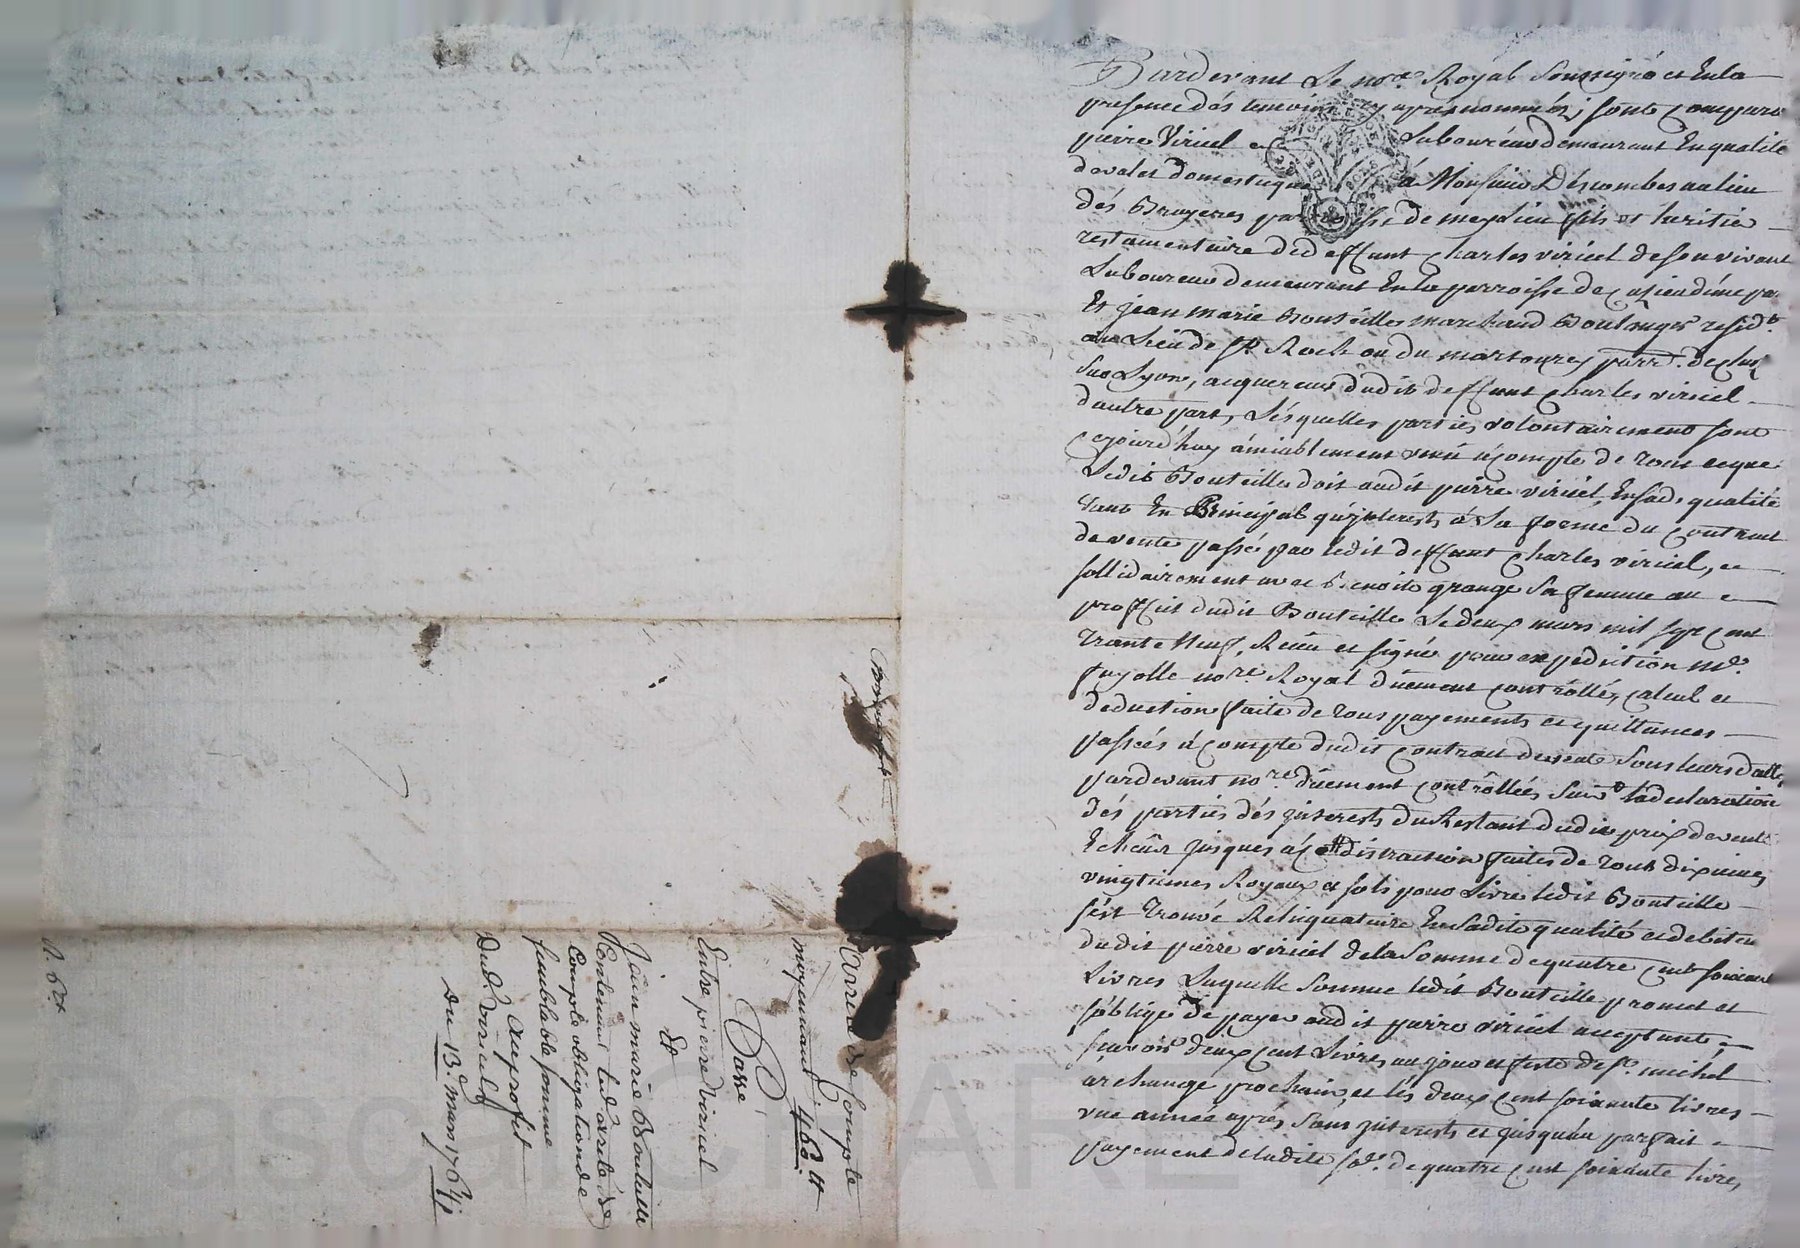 Pardevant Le nore. Royal Soussigné et En la
presence dés temoins cy aprés nommés, sont comparu
pierre Viricel Laboureur demeurant En qualité
de valet domestique á Monsieur Descombes au lieu
dés Bruyeres parroisse de meylieu fils et heritier
testamentaire dud deffunt Charles viricel de son vivant
Laboureur demeurant En la parroisse de
Et jean marie Bouteille marchand Boulanger resid.t
au Lieu de St Roch ou du martourey parr. de
Sur Lyon, acquereur dudit deffunt Charles viricel
d'autre part, Lésquelles parties volontairement sont
cejourd'huy ámiablement venü á compte de tout ce que
Ledit Bouteille doit audit pierre viricel, En sad. qualité
tant En Principal qu'jnterests á la forme du Contract
de vente passée par ledit deffunt Charles viricel, et
sollidairement avec Benoite grange Sa femme au
proffit dudit Bouteille Le deux mars mil sept cent
trante Neuf, Reçu et signé pour expedition Me.
fayolle nore. Royal düement controllé, calcul et
deduction faite de tous payements et quittances
passées á compte dudit contract de vente sous leurs dattes
pardevant nore. düement contrôllées suivt. la declaration
dés parties dés jnterests du Restant dudit prix de vente
Echeûs jusques á ce distraction faites de tous dixiemes
vingtiemes Royaux et sols pour Livre ledit Bouteille
s'ést trouvé Reliquataire En sadite qualité et debiteur
dudit pierre viricel de la Somme de quatre cent soixante
Livres Laquelle Somme ledit Bouteille promet et
s'oblige de payer audit pierre viricel acceptant
sçavoir deux cent Livres au jour et feste de St. michel
archange prochain, et lés deux cent soixante livres
une année aprés Sans jnterests et jusqu'au parfait
payement de ladite so.e de quatre cent soixante livres,
Arreté de Compte
moyennant 460 tt
Passé
Entre pierre Viricel
Et
Jean marie Bouteille
Contenant led. arreté de
Compte obligation de
semblable somme
Au profit
Dud. Viricel
Du 13.e mars 1764